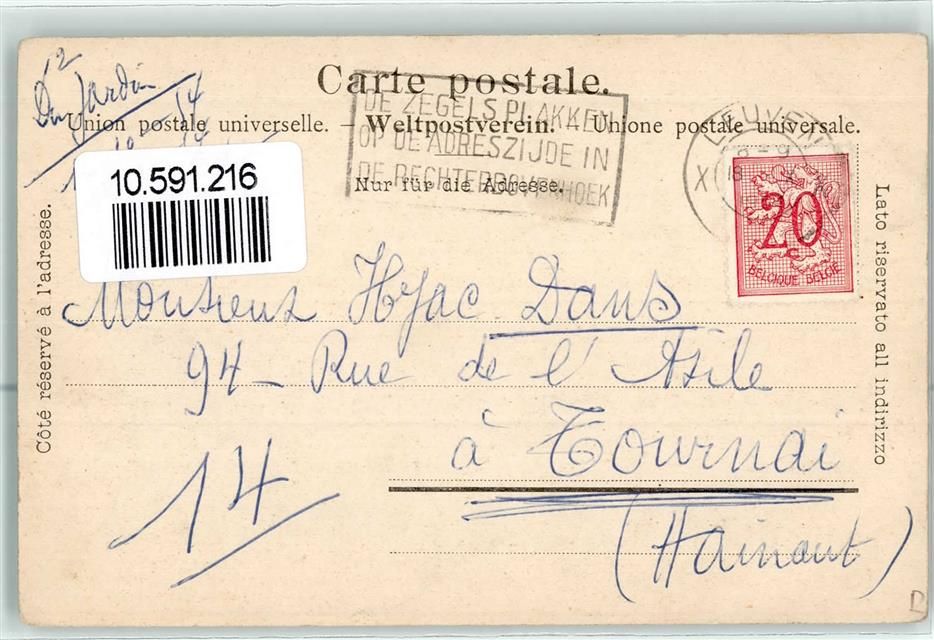 Du Jardin
Carte postale.
DE ZEGELS PLAKKEN
OP DE ADRESZIJDE IN
DE RECHTERBOVENHOEK
LEUVEN
Union postale universelle. – Weltpostverein. – Unione postale universale.
Nur für die Adresse.
10.591.216
20
c
BELGIQUE BELGIË
Côté réservé à l'adresse.
Lato riservato all indirizzo
Monsieur Hyac. Dans
94 - Rue de l'Asile
à Tournai
14
(Hainaut)